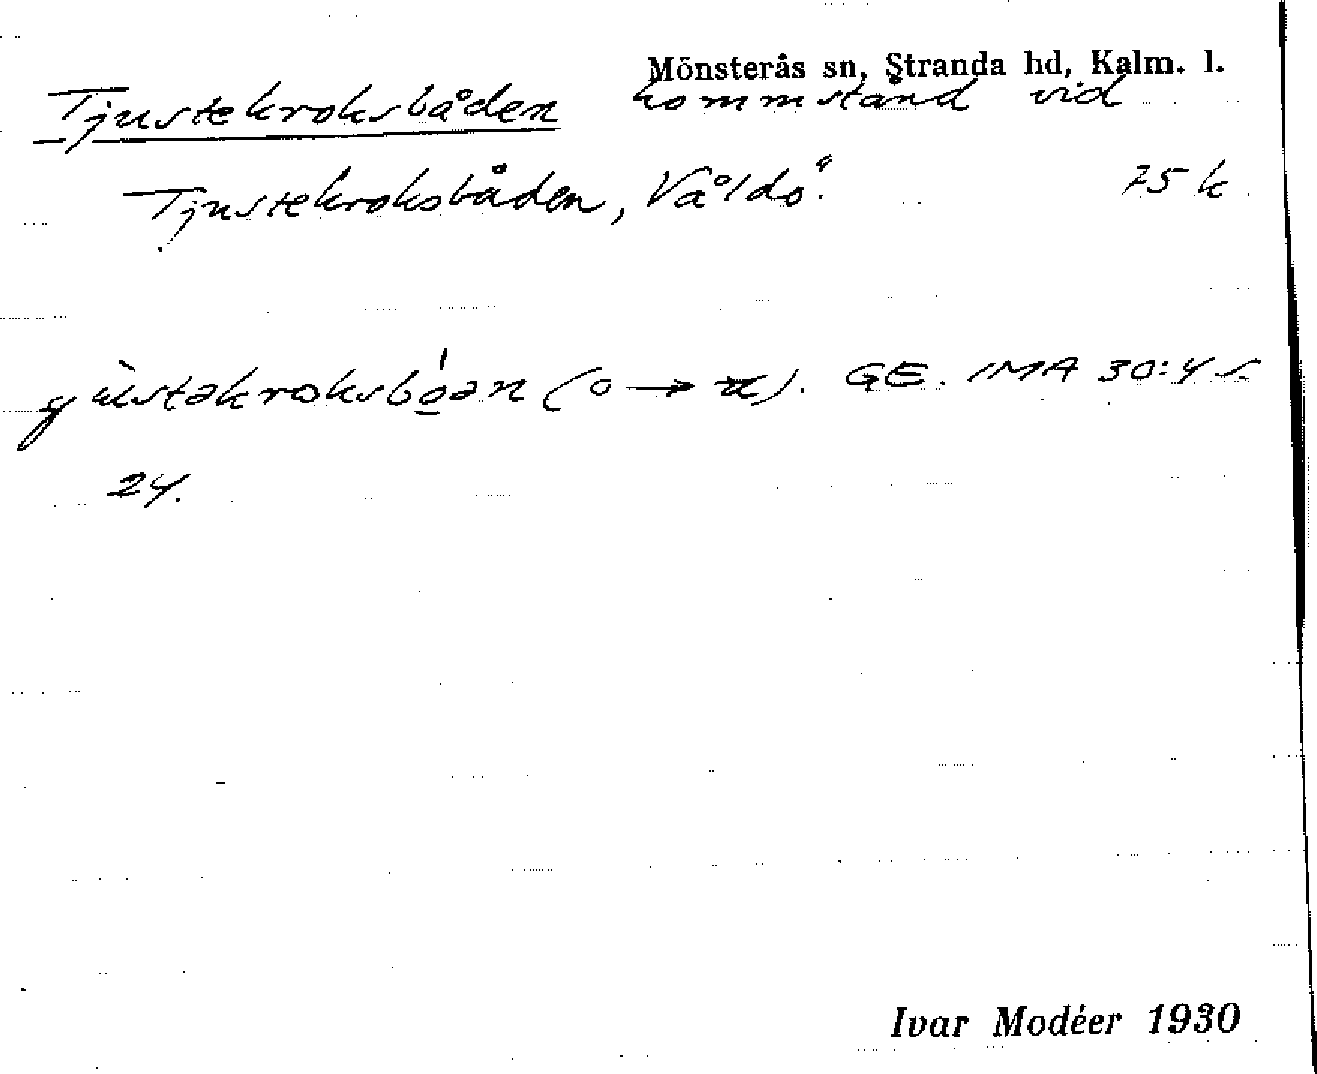 Mönsterås sn, Stranda hd, Kalm. l.
Tjustekroksbåden kommstånd vid
Tjustekroksbåden, Våldö." 75 k
24.
GE. IMA 30:4 s.
Ivar Modéer 1930